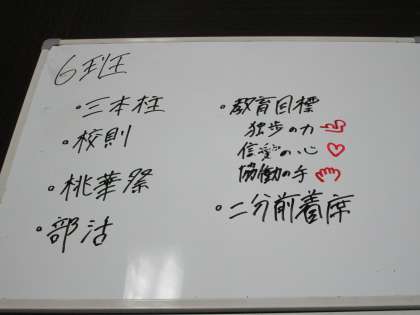 6班
・三本柱
・校則
・桃華祭
・部活
・教育目標
独歩の力
信愛の心
協働の手
・二分前着席